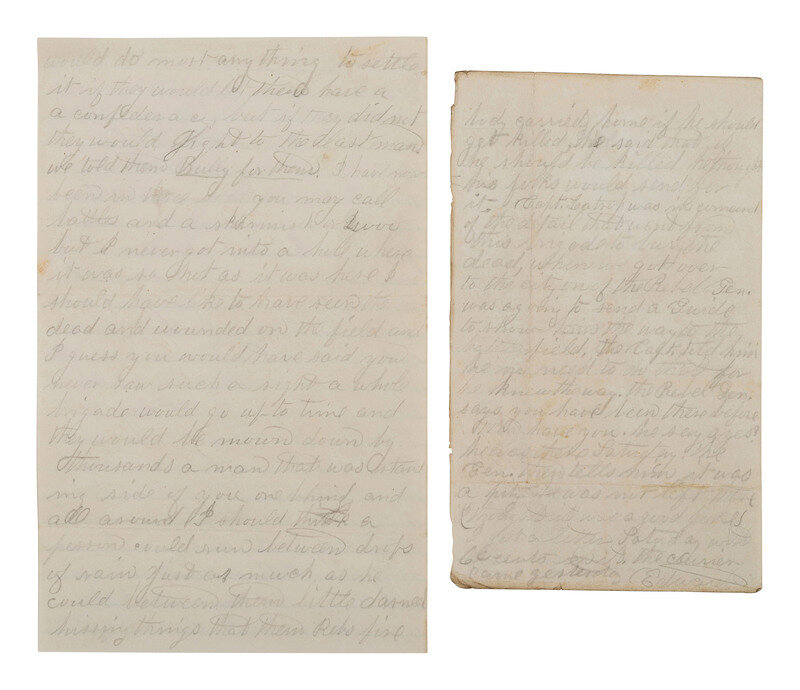 would do most anything to settle
it if they would let them have a
a confederacy, but if they did not
they would fight to the last man
we told them Bully for them. I have now
been in you may call
battles and a skirmish or two
but I never got into a where
it was so hot as it was here I
should have like to have seen the
dead and wounded on the field and
I guess you would have said you
never saw such a sight a whole
brigade would go up to time and
they would be mown down by
thousands a man that was stand
ing side of you one and
all around I should think a
person could run between drops
of rain just as much as he
could between them little darned
hissing things that them Rebs fire
body carried home if he should
get killed, he said that if
he should be killed he thought
his folks would send for
it. Capt. was in command
of the detail that went from
this brigade to bury the
dead, when he got over
to the of the Rebel Gen.
was a going to send a Guide
to show him the way to the
field, the Capt. told him
no need to do that for
he knew the way. the Rebel Gen.
says you have been there before
have you. he says yes
he was there Saturday. the
Gen. then tells him it was
a pity he was not kept there
but was a good
I got a letter Saturday with
60 cents in it, the courier
came yesterday Edward